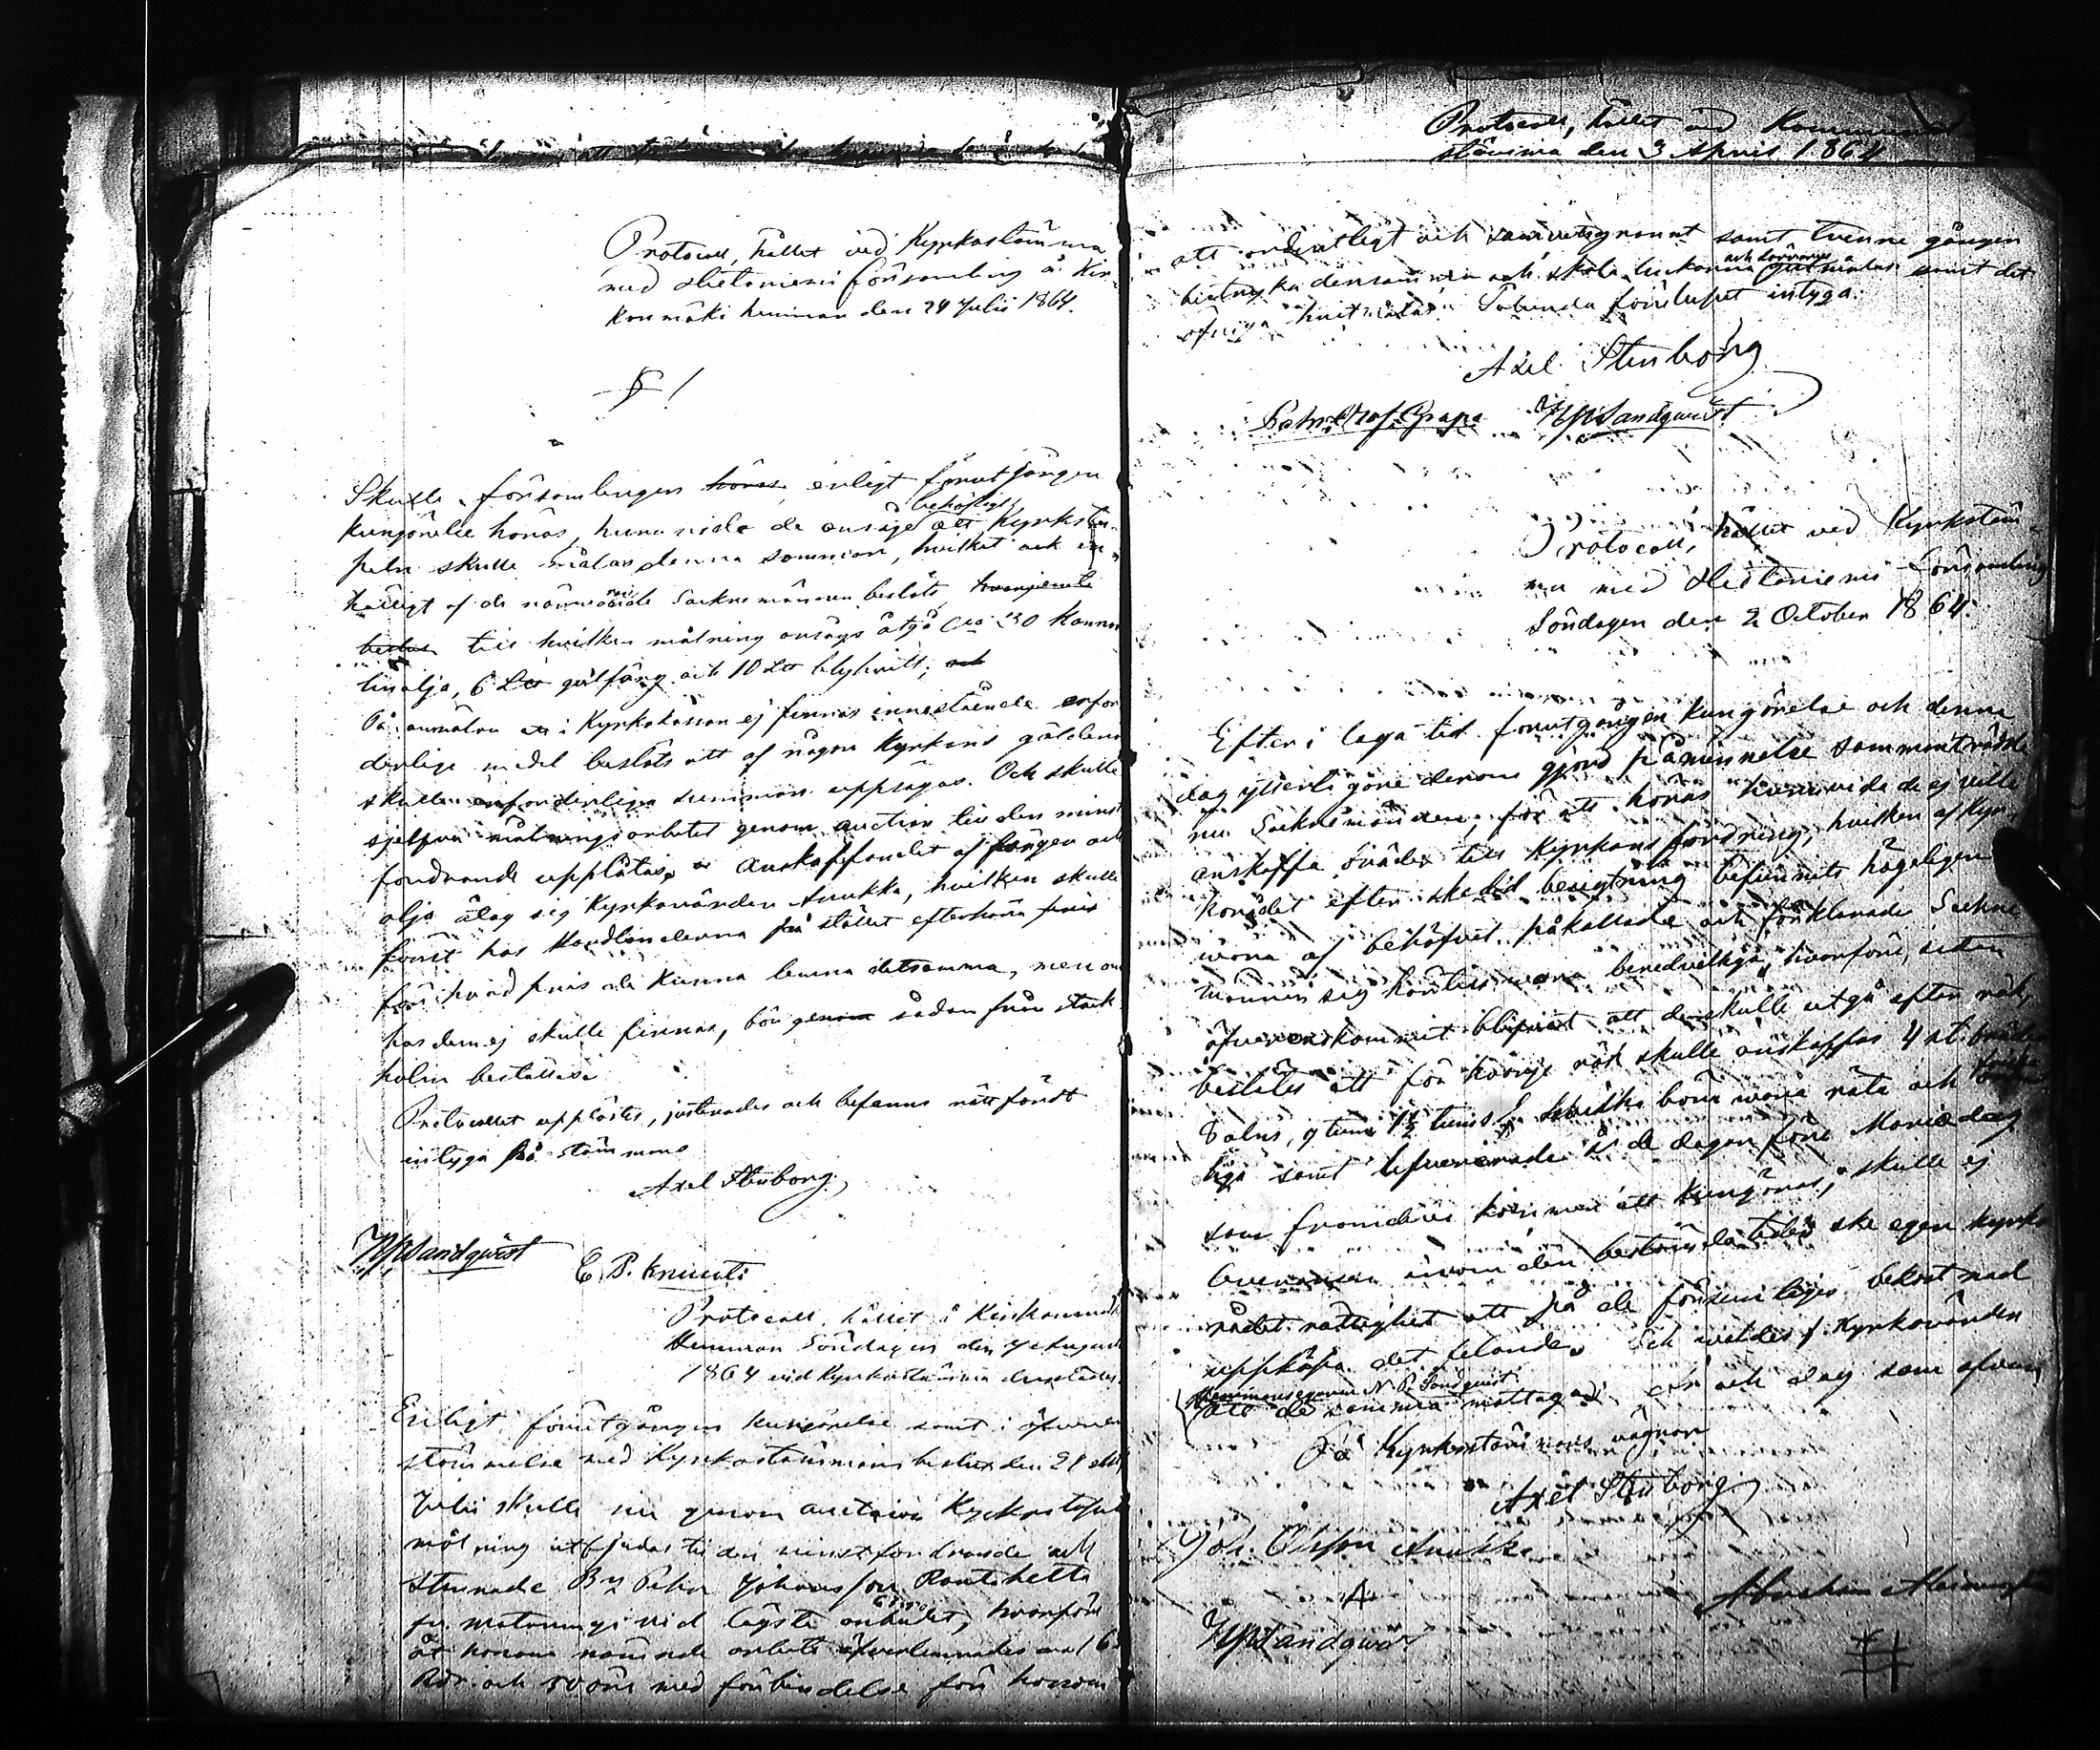 Protocoll, hållet vid Kyrkostämma
med Hietaniemi församling å Kir-
konmäki hemman den 24 Julii 1864.
§ 1
Skulle församlingen höras enligt förutgången
kungörelse höras, huruvida de ansågo behöfligt att Kyrkstap-
peln skulle målas denna sommar, hvilket ock en-
hälligt af de närvarande Sockne männen beslöts,
beslut till hvilken målning ansågs åtgå ca 30 Kannor
linolja, 6 L℔ gulfärg och 10 L℔ blyhvitt; och
På anmälan att i Kyrkokassan ej finnas innestående erfor
derlige medel beslöts att af någon Kyrkans gäldenär
skulle erforderliga summan uppsägas. Och skulle
sjelfva målningsarbetet genom auction till den minst
fordrande upplåtas. Anskaffandet af färgen och
olja åtog sig Kyrkovärden Anukka, hvilken skulle
först hos Handlanderna på stället efterhöra pris
för hvad pris de kunna lemna detsamma, men om
hos dem ej skulle finnas, bör genom sådan från Stock
holm beställas.
Protocollet upplästes, justerades och befanns rätt fördt
intyga på stämmans
Axel Stenborg
N P Sandqvist
E. P. Knuuti
Protocoll, hållet å Kirkonmäki
hemman Söndagen den 7 Augusti
1864 vid Kyrkostämma derstädes.
Enligt förutgången kungörelse samt i öfverens
stämmelse med Kyrkostämmans beslut den 24
Julii skulle nu genom auction Kyrkostapel
målning utbjudas till den minst fordrande och
stannade By Petter Johansson Rautahetta
fr. Matarengi vid lägsta anbudet, hvarföre
åt honom nämnde arbete öfverlemnades
Rdr och 50 öre med förbindelse för honom
Protocoll, hållet vid Kommunal
stämma den 3 April 1864
att ordentligt och samvetsgrannt samt tvenne gånger
bestryka densamma och skola luckorna och dörrarne gulmålas samt det
öfriga hvitmålas. Sålunda förelupet intyga.
Axel Stenborg
Grape N P Sandqvist
Protocoll, hållet vid Kyrkostäm-
ma med Hietaniemi församling
Söndagen den 2 October 1864.
Efter i laga tid förutgången kungörelse och denna
dag ytterligare derom gjord påminnelse sammanträdde
nu Sockne männen, för att höras huruvida de ej ville
anskaffa bräder till Kyrkans fordring, hvilken af Kyr-
korådet efter skedd besigtning befunnits högeligen
vara af behofvet påkallade och förklarade Sockne
männen sig härtill vara beredvillige, hvarföre, sedan
öfverenskommit blifvit att de skulle utgå efter rök,
beslöts att för hvarje rök skulle anskaffas 4 st bräder
6 alns, 9 tum 1½ tums hvilka böra vara räta och
liga samt lefvererade å de dagar före Mariedag
som framdeles kommer att kungöras, skulle ej
leveransen inom den bestämda tiden ske egen kyrko
rådet rättighet att på de försumliges bekostnad
uppköpa det felande. Och valdes Kyrkovärden
hemmansegaren N. P. Sandqvist
att de samma mottaga år och dag som ofvan
På Kyrkostämmans vägnar
Axel Stenborg
Joh. Ersson Anukka
N P Sandqvist
Abraham